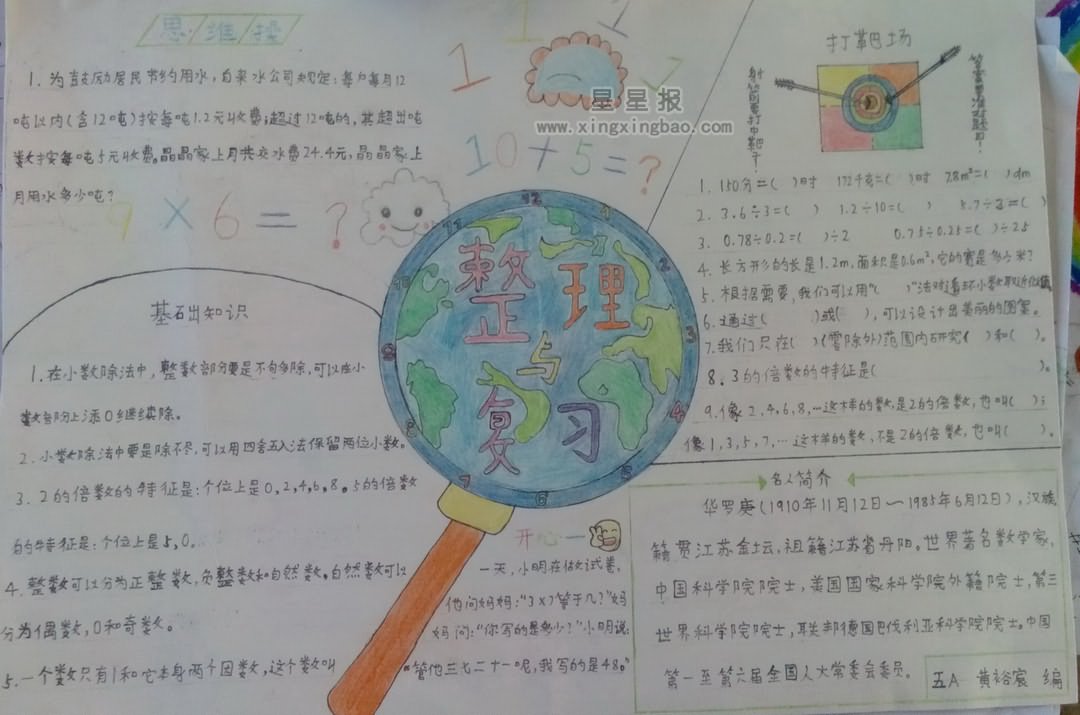 思维操
1. 为鼓励居民节约用水，自来水公司规定：每户每月12
吨以内（含12吨）按每吨1.2元收费；超过12吨的，其超出吨
数按每吨5元收费。晶晶家上月共交水费24.4元，晶晶家上
月用水多少吨？
9×6=?
1 1
1 2
10+5=?
星星报
www.xingxingbao.com
打靶场
射箭要打中靶子
答案要准对题目！
1. 150分=( )时 172千克=( )时 7.8m²=( )dm
2. 3.6÷3=( ) 1.2÷10=( ) 5.7÷3=( )
3. 0.78÷0.2=( )÷2 0.75÷0.25=( )÷25
4. 长方形的长是1.2m，面积是0.6m²，它的宽是多少米？
5. 根据需要，我们可以用“( )”法对循环小数取近似值
6. 通过( )或( )，可以设计出美丽的图案。
7. 我们只在( )（零除外）范围内研究( )和( )。
8. 3的倍数的特征是( )。
9. 像2，4，6，8，…这样的数是2的倍数，也叫( )；
像1，3，5，7，…这样的数，不是2的倍数，也叫( )。
整理
与
复习
12 1 2 3 4 5 6 7 8 9 10 11
基础出知识
1. 在小数除法中，整数部分要是不句多除，可以在小
数部分上添0继续除。
2. 小数除法中要是除不尽，可以用四舍五入法保留两位小数。
3. 2的倍数的特征是：个位上是0，2，4，6，8。5的倍数
的特征是：个位上是5，0。
4. 整数可以分为正整数，负整数和自然数。自然数可以
分为偶数，0和奇数。
5. 一个数只有1和它本身两个因数，这个数叫
开心一
一天，小明在做试卷，
他问妈妈：“3×7等于几？”妈
妈问：“你写的是多少？”小明说：
“管他三七二十一呢，我写的是48。”
名人简介
华罗庚（1910年11月12日—1985年6月12日），汉族，
籍贯江苏金坛，祖籍江苏省丹阳。世界著名数学家，
中国科学院院士，美国国家科学院外籍院士，第三
世界科学院院士，联邦德国巴伐利亚科学院院士。中国
第一至第六届全国人大常委会委员。
五A 黄裕宸 编